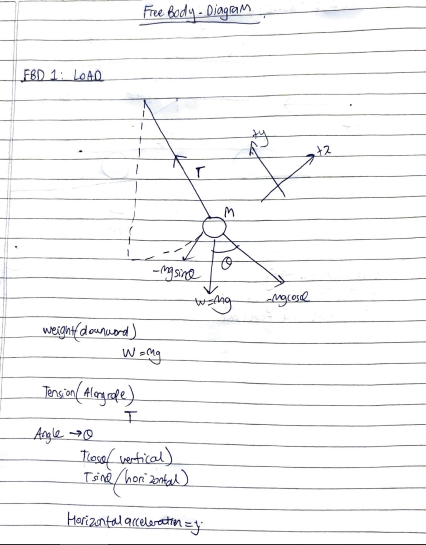 Free Body - Diagram.
FBD 1: LOAD
+y
+x
T
M
θ
-mgsinθ
W=mg
-mgcosθ
weight(downword)
W = mg
Tension(Along rope)
T
Angle → θ
Tcosθ(vertical)
Tsinθ(horizontal)
Horizontal acceleration =